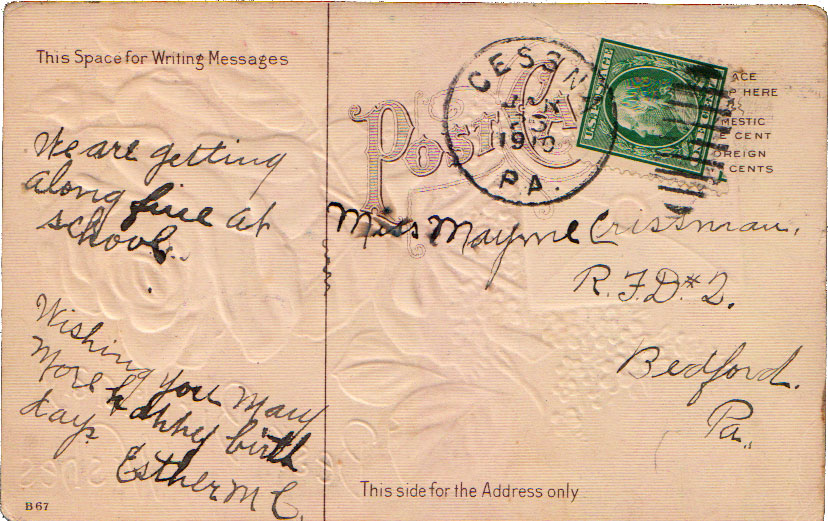 This Space for Writing Messages
We are getting
along fine at
school.
Wishing you many
more happy birth
days
Esther M C.
B 67
Post Ca
CESSN
1910
PA.
U.S. POSTAGE
ACE
HERE
MESTIC
CENT
OREIGN
CENTS
Miss Mayme Crissman.
R.F.D.# 2.
Bedford.
Pa.
This side for the Address only